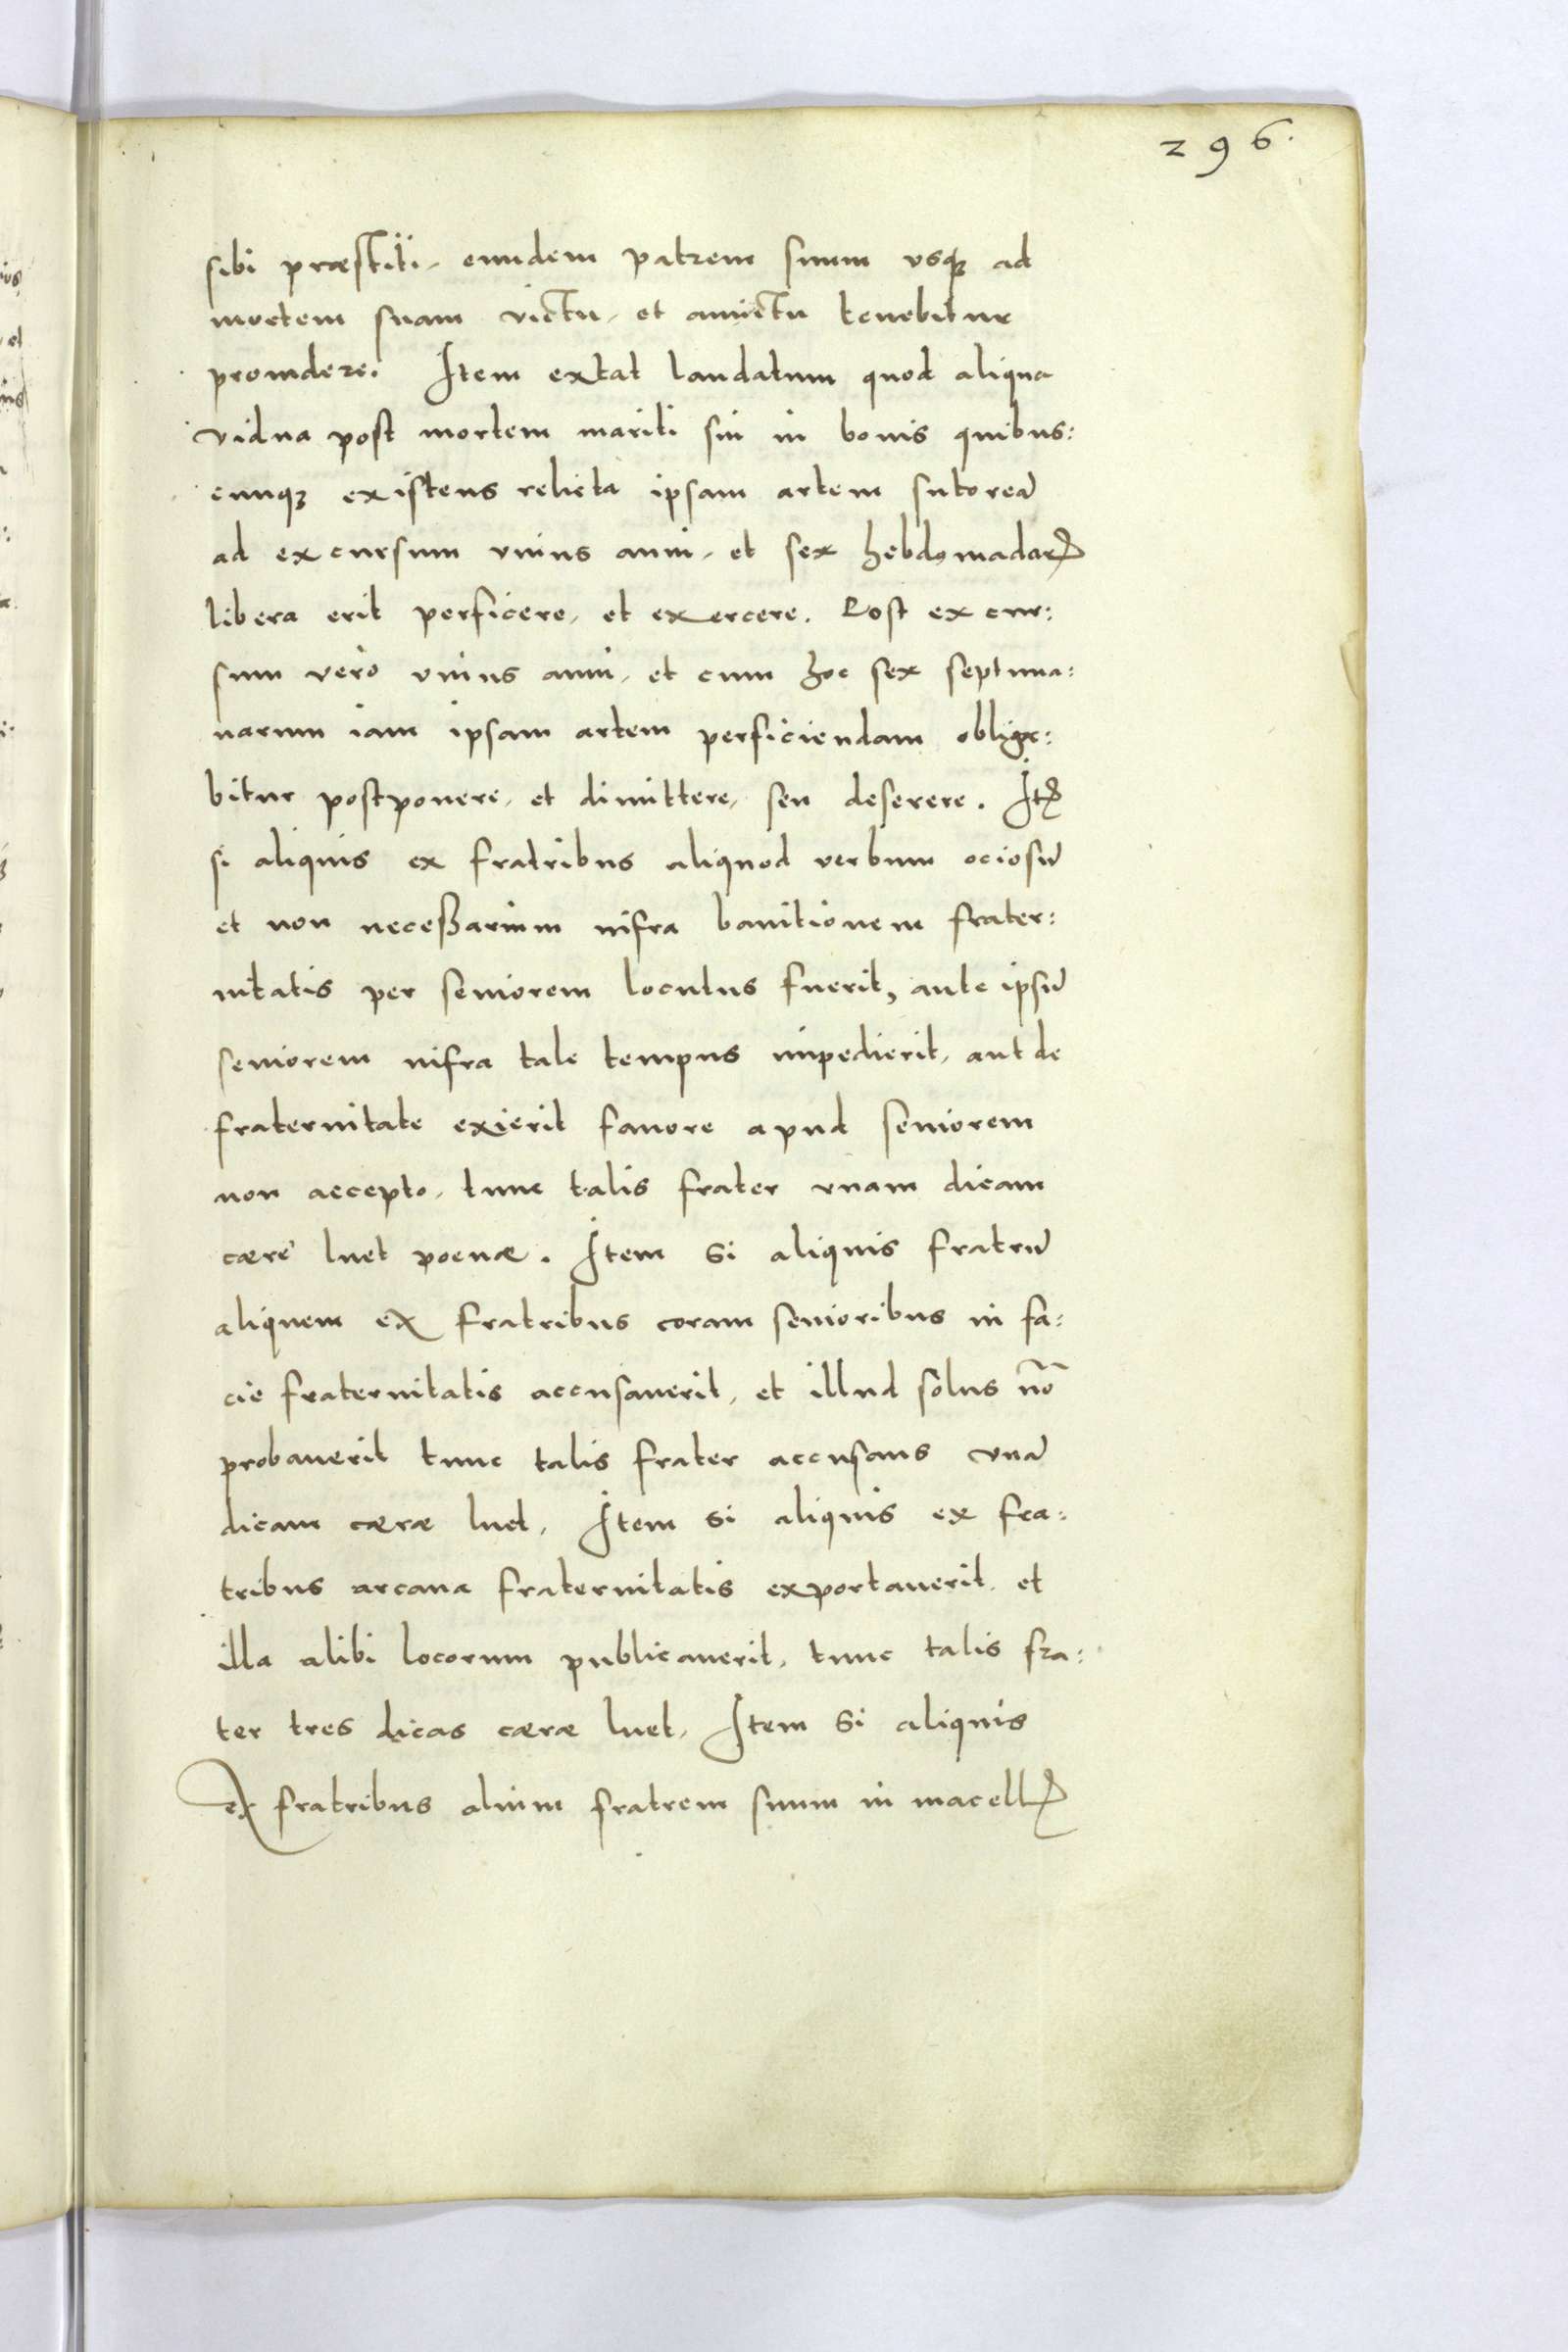 296.
sibi præstiti, eundem patrem suum vsqꝫ ad
mortem suam victu, et amictu tenebitur
prouidere. Item extat laudatum quod aliqua
vidua post mortem mariti sui in bonis quibus:
cunqꝫ existens relicta ipsam artem sutoreã
ad excursum vnius anni, et sex hebdomadarꝝ
libera erit perficere, et exercere. Post excur:
sum verò vnius anni, et cum hoc sex septima:
narum iam ipsam artem perficiendam obliga:
bitur postponere, et dimittere, seu deserere. Itẽ
si aliquis ex fratribus aliquod verbum ociosũ
et non neceßarium infra banitionem frater:
nitatis per seniorem locutus fuerit, aut e ipsũ
seniorem infra tale tempus impedierit, aut de
fraternitate exierit fauore apud seniorem
non accepto, tunc talis frater vnam dicam
cæré luet poenæ. Item si aliquis fratrũ
aliquem ex fratribus coram senioribus in fa:
cie fraternitatis accusauerit, et illud solus nõ
probauerit tunc talis frater accusans vnã
dicam cæræ luet, Item si aliquis ex fra:
tribus arcana fraternitatis exportauerit, et
illa alibi locorum publicauerit, tunc talis fra:
ter tres dicas cæræ luet, Item si aliquis
ex fratribus alium fratrem suum in macellꝭ